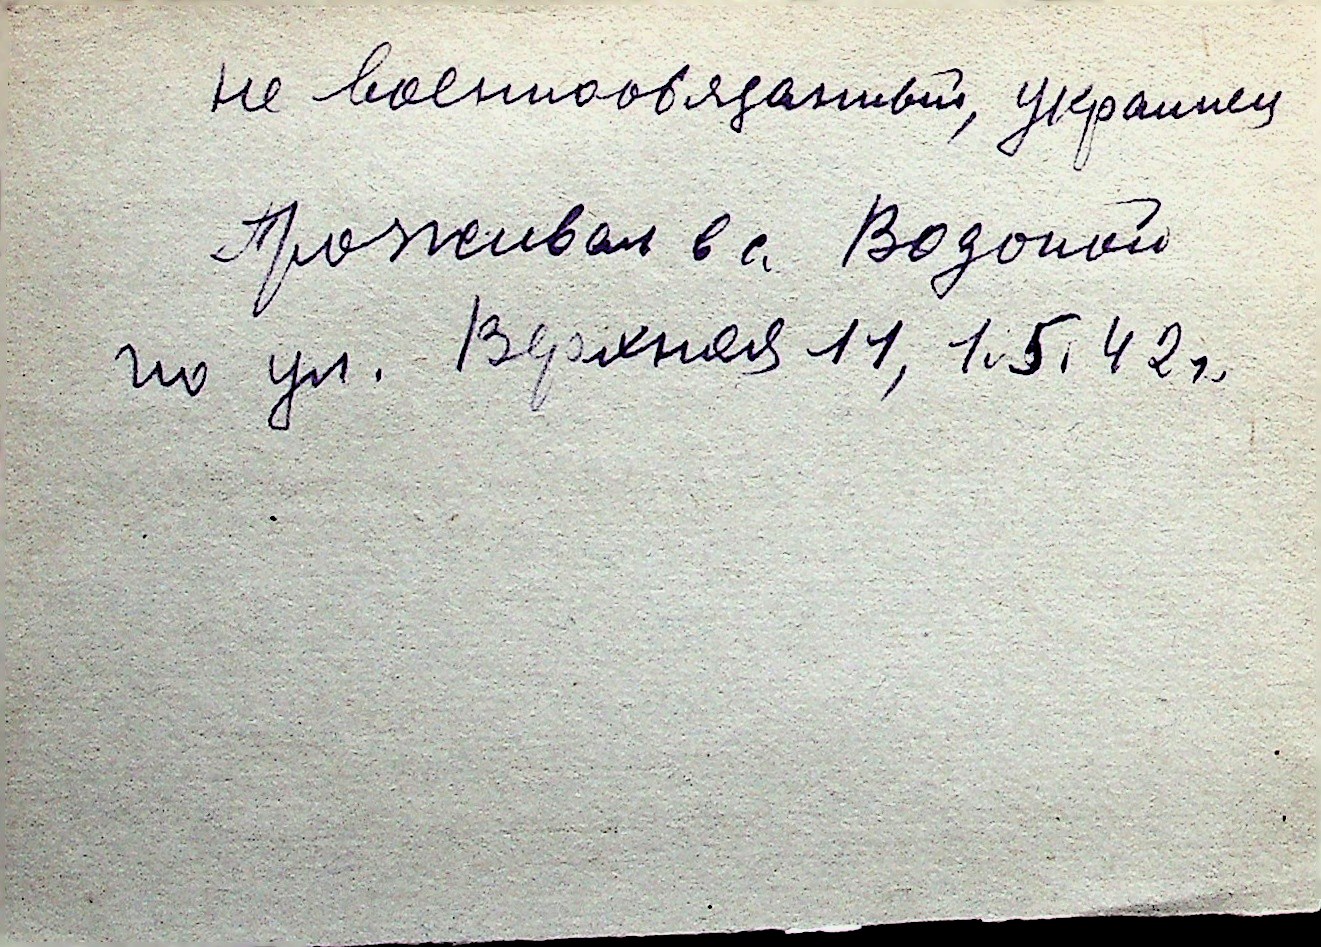 не военнообязанный, украинец
Проживал в с. Водопой
по ул. Верхняя 11, 1.5.42г.